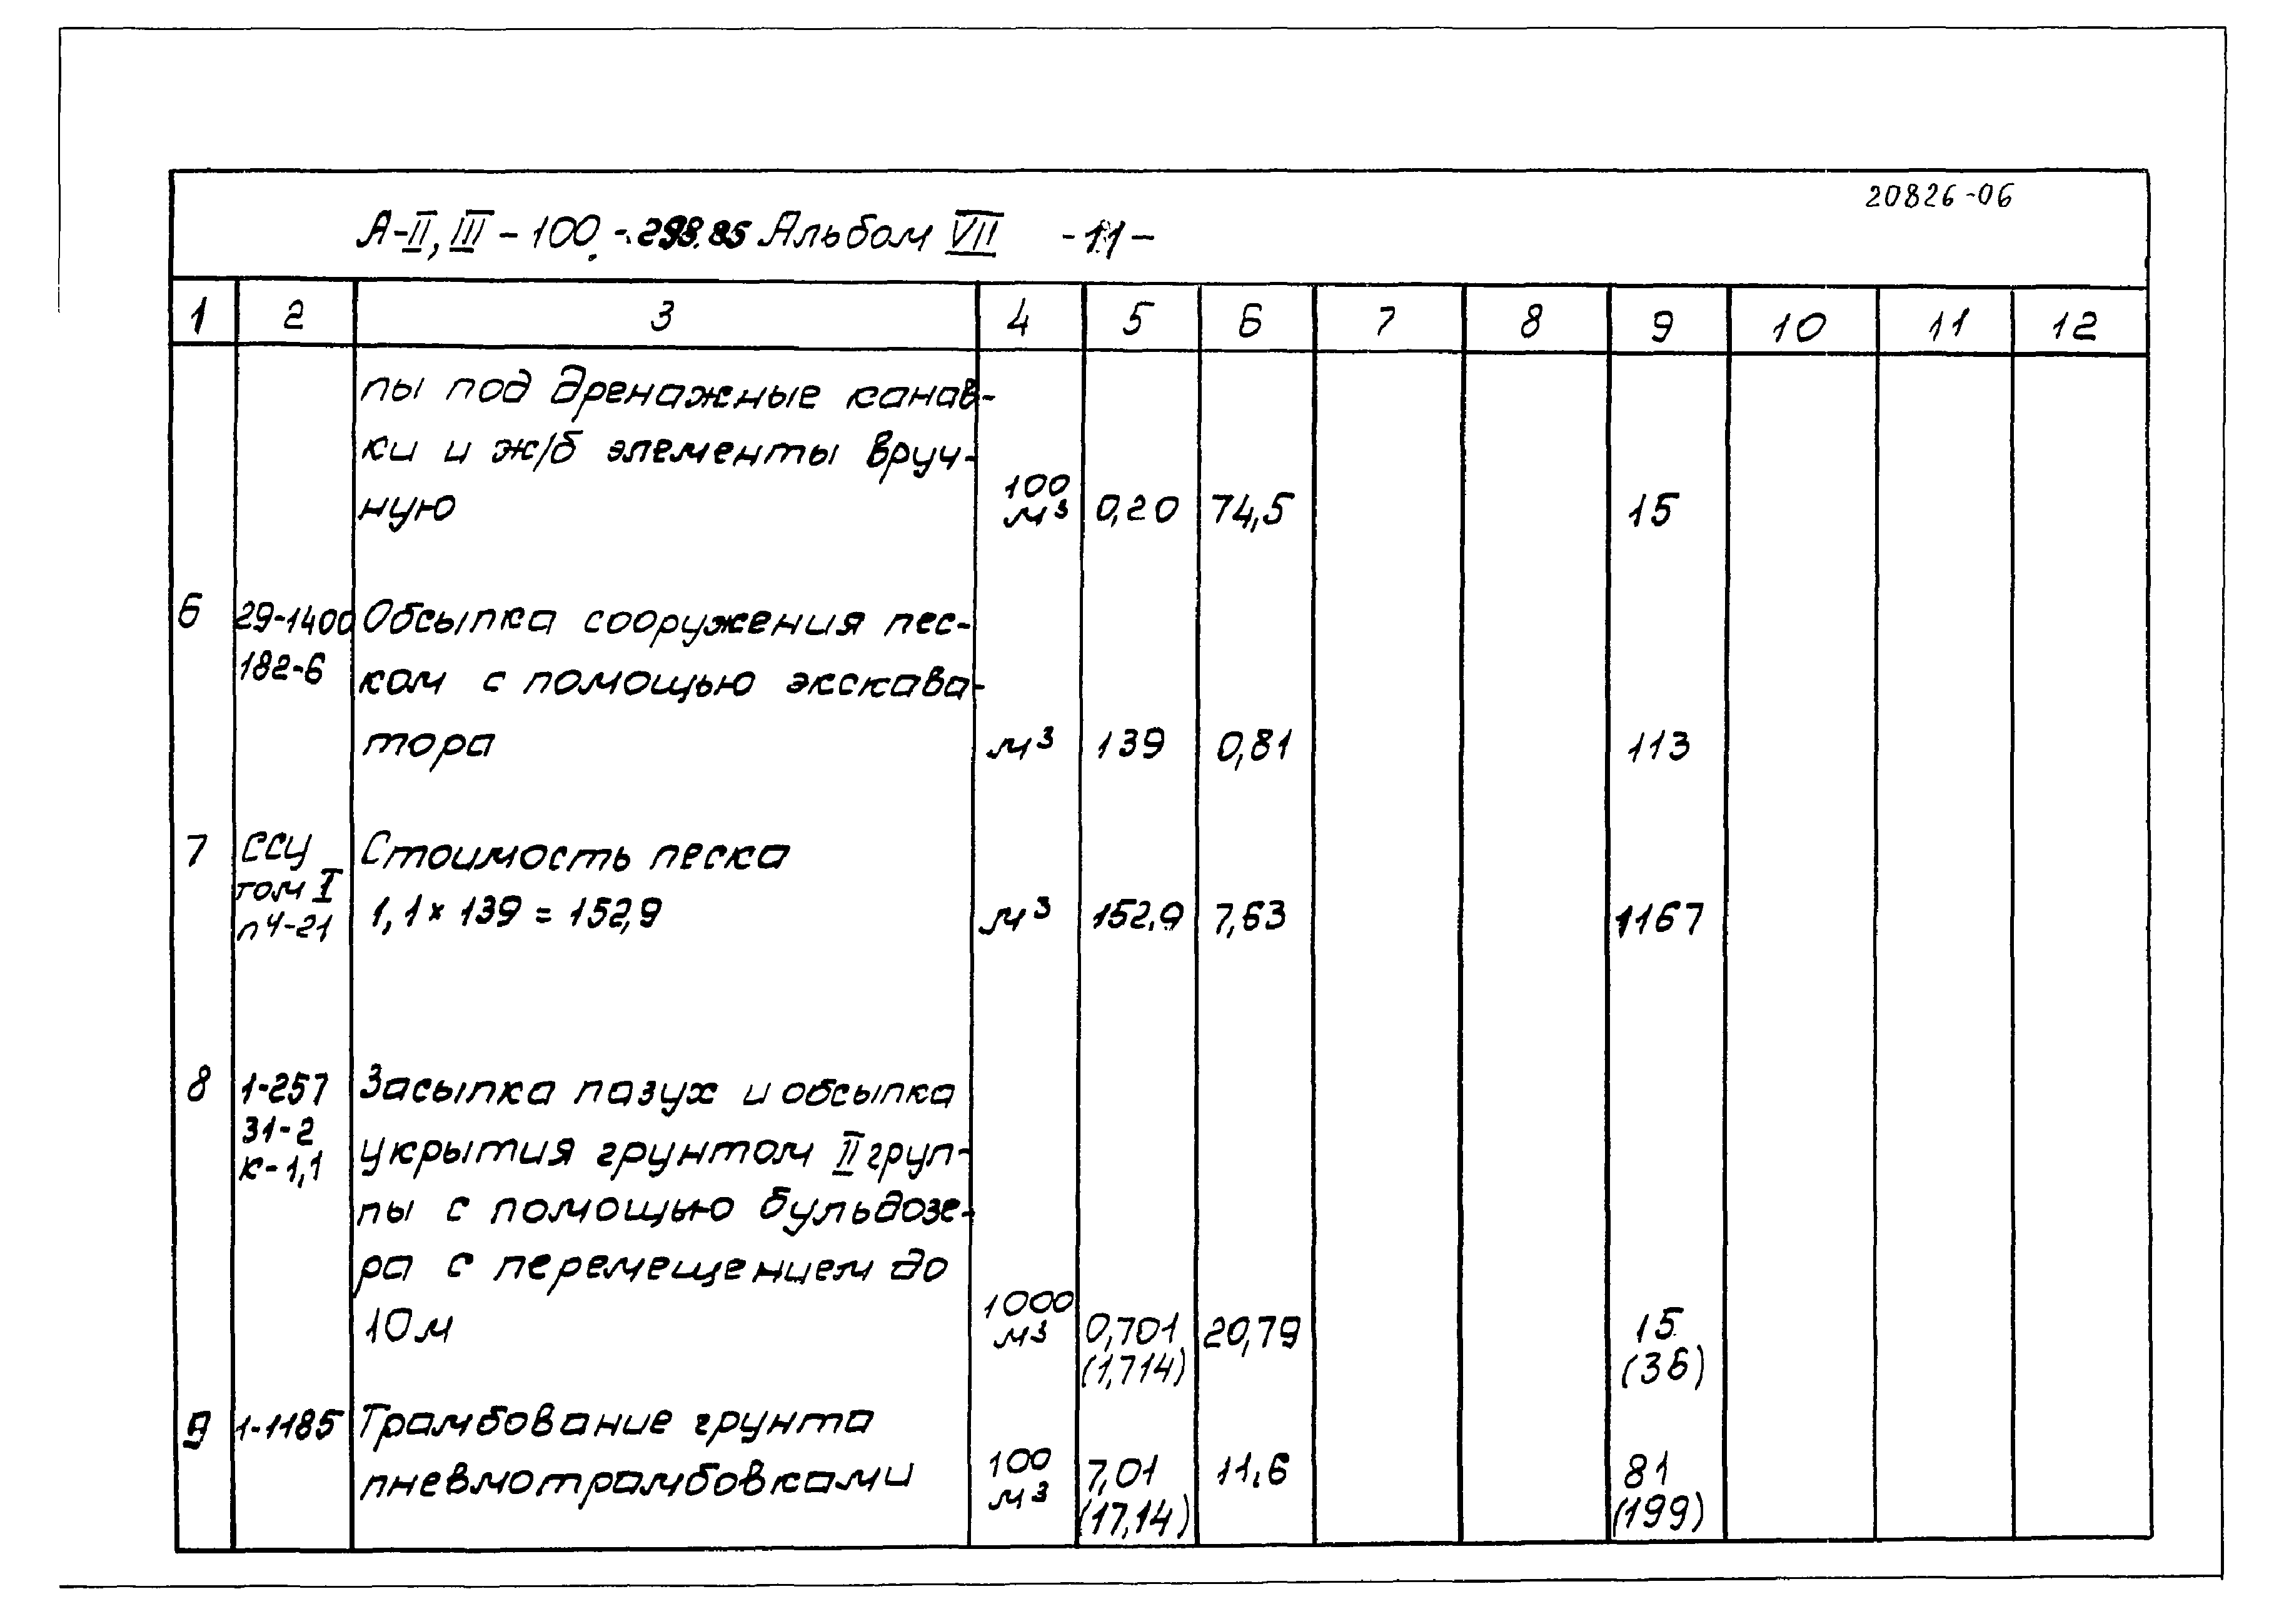 20826-06
А-II, III - 100 - 298.85 Альбом VII -11-
1 2 3 4 5 6 7 8 9 10 11 12
пы под дренажные канав-
ки и ж/б элементы вруч-
ную 100 м³ 0,20 74,5 15
6 29-1400 Обсыпка сооружения пес-
182-6 ком с помощью экскава-
тора м³ 139 0,81 113
7 ССУ Стоимость песка
том I
п4-21 1,1 × 139 = 152,9 м³ 152,9 7,63 1167
8 1-257 Засыпка пазух и обсыпка
31-2
к-1,1 укрытия грунтом II груп-
пы с помощью бульдозе-
ра с перемещением до
10м 1000 м³ 0,701 20,79 15
(1,714) (36)
9 1-1185 Трамбование грунта
пневмотрамбовками 100 м³ 7,01 11,6 81
(17,14) (199)